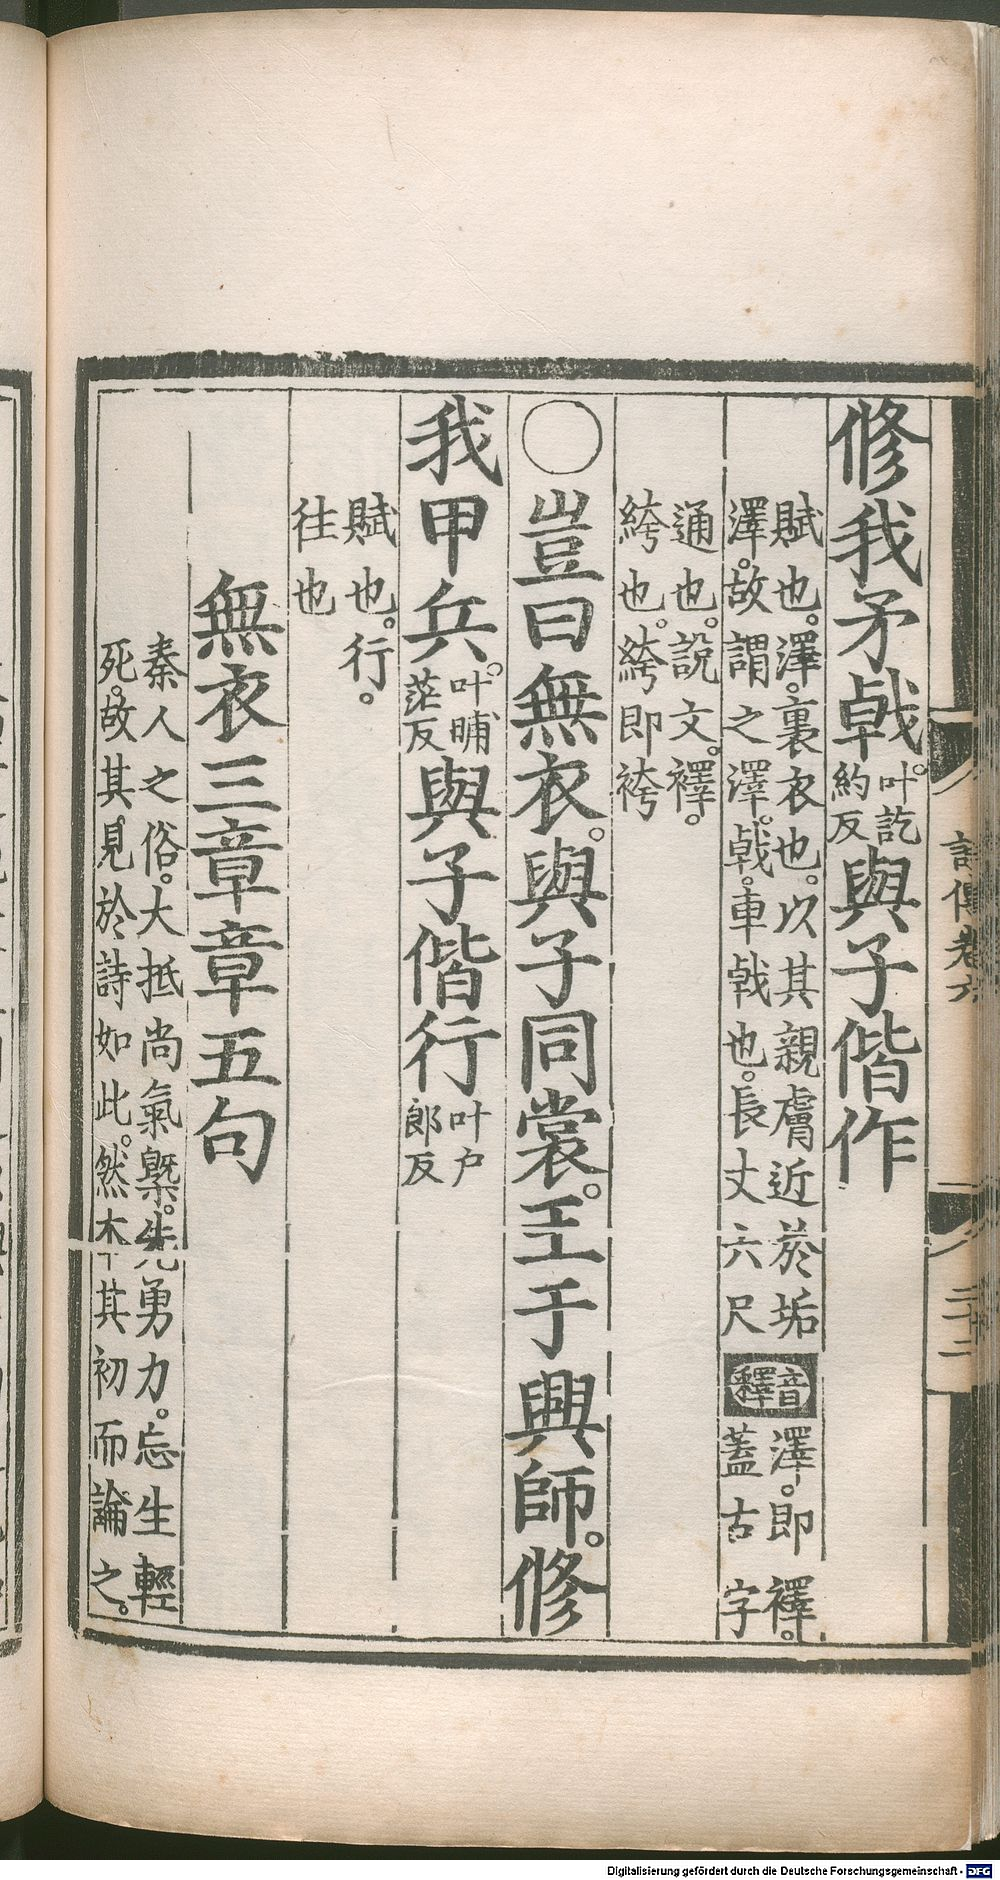 修我矛戟。叶訖約反與子偕作
賦也。澤。裏衣也。以其親膚近於垢
澤。故謂之澤。戟。車戟也。長丈六尺
音釋
澤。即襗。
蓋古字
通也。說文。襗。
絝也。絝即袴
○豈曰無衣。與子同裳。王于興師。修
我甲兵。叶晡茫反與子偕行叶戶郎反
賦也。行。
往也
無衣三章章五句
秦人之俗。大抵尚氣槩。先勇力。忘生輕
死。故其見於詩如此。然本其初而論之。
詩傳卷六
二十二
Digitalisierung gefördert durch die Deutsche Forschungsgemeinschaft - DFG